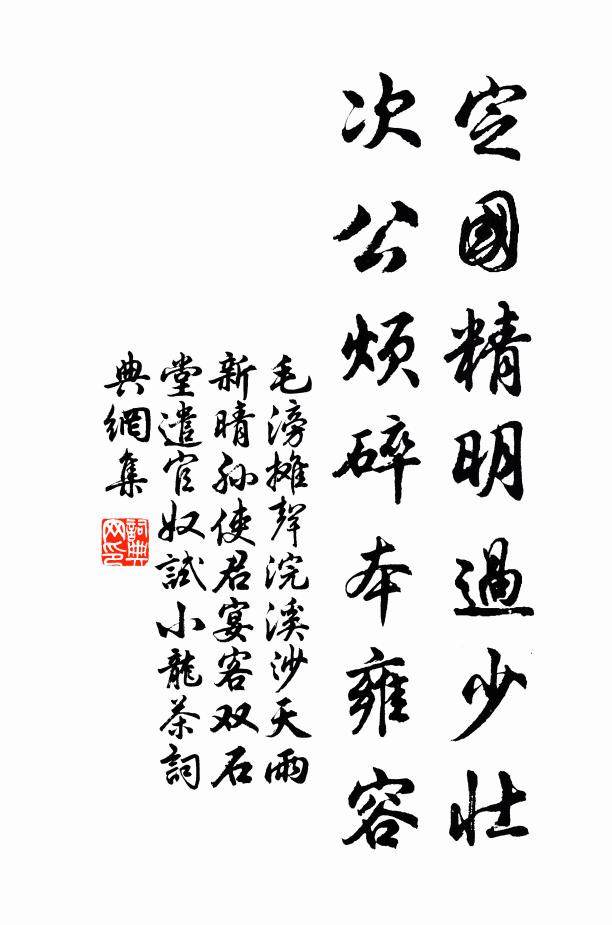 定國精明過少壯
次公煩碎本雍容
毛滂摊聲浣溪沙天雨
新晴孙使君宴客双石
堂遣官奴試小龍茶詞
典網集
詞典
网印